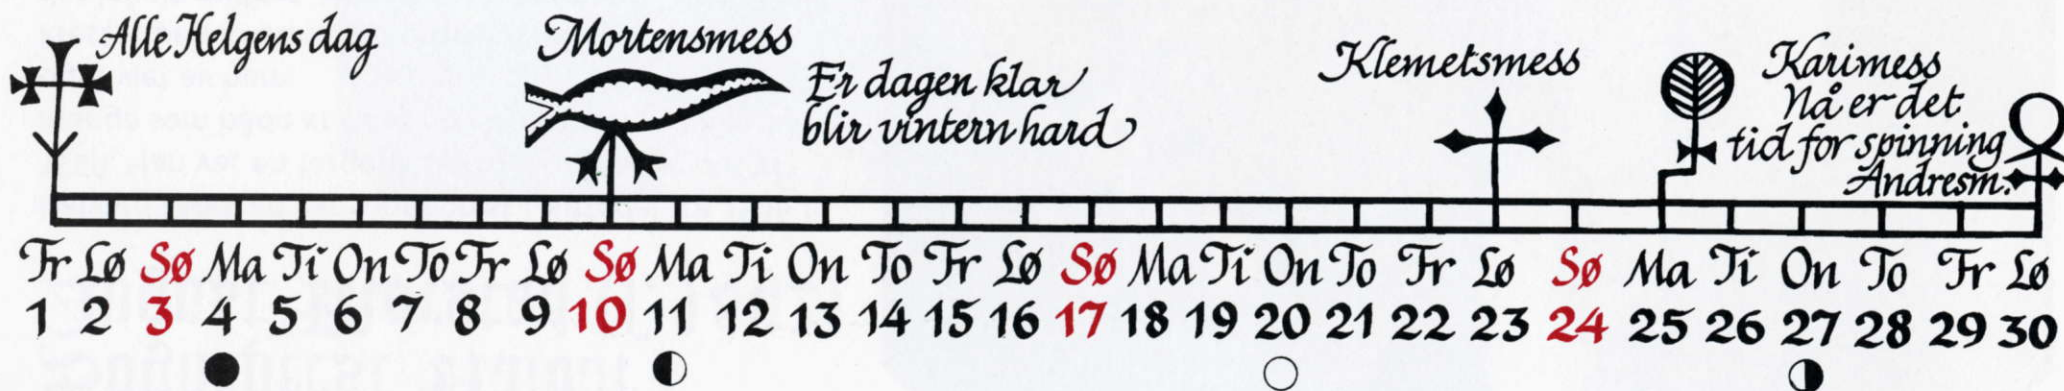 Alle Helgens dag
Mortensmess
Er dagen klar
blir vintern hard
Klemetsmess
Karimess
Nå er det
tid for spinning
Andresm.
Fr Lø Sø Ma Ti On To Fr Lø Sø Ma Ti On To Fr Lø Sø Ma Ti On To Fr Lø Sø Ma Ti On To Fr Lø
1 2 3 4 5 6 7 8 9 10 11 12 13 14 15 16 17 18 19 20 21 22 23 24 25 26 27 28 29 30